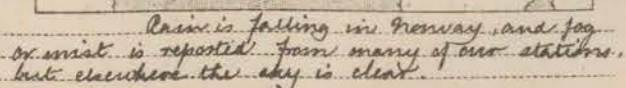 Rain is falling in Norway, and fog
or mist is reported from many of our stations,
but elsewhere the sky is clear.